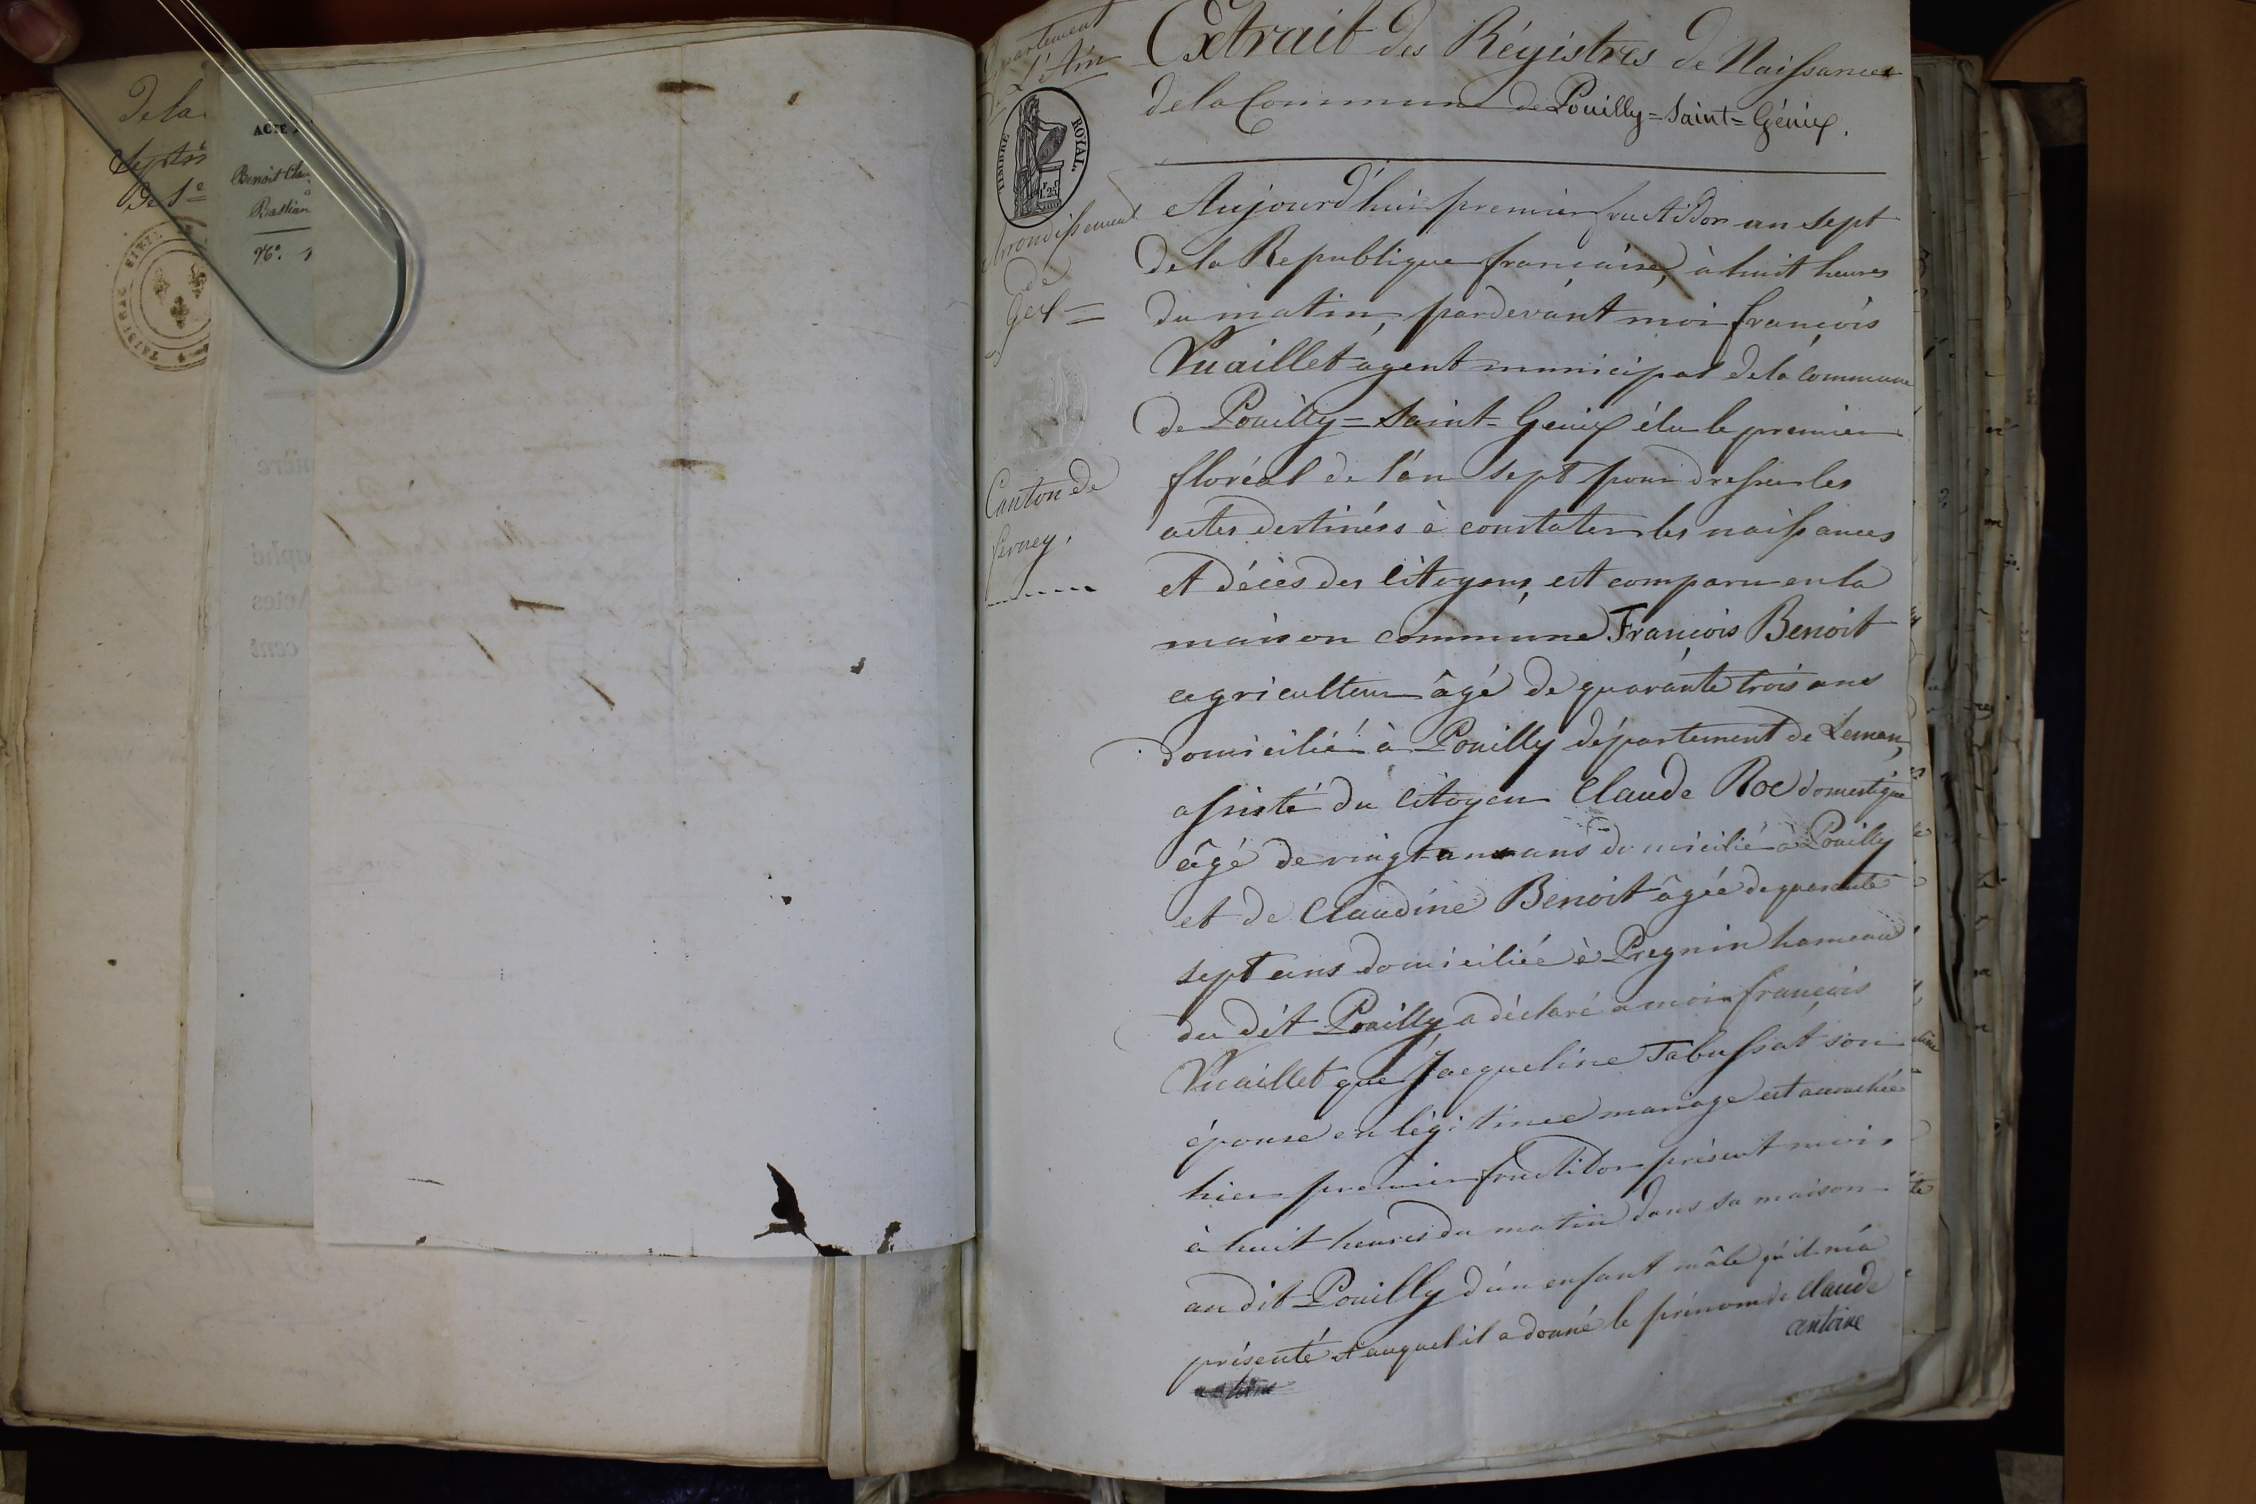 de la
Septre
De Se
ACTE
Benoit Cla
a
Bastian
No. 1
Département
de l'Ain
TIMBRE ROYAL
1f 25c
Arrondissement
de
Gex =
Canton de
Ferney.
Extrait des Régistres de Naissances
de la Commune de Pouilly = Saint = Génix.
Aujourd'hui premier fructidor an sept
de la Republique francaise, à huit heures
du matin, pardevant moi françois
Vuaillet agent municipal de la commune
de Pouilly = Saint = Genix élu le premier
floréal de l'an sept pour dresser les
actes destinées à constater les naissances
et décès des citoyens, est comparu en la
maison commune François Benoit
agriculteur âgé de quarante trois ans
domicilié à Pouilly département de Leman,
assisté du citoyen Claude Roc domestique
âgé de vingt ans domicilié à Pouilly
et de Claudine Benoit âgée de quarante
sept ans domiciliée à Pregnin hameau
du dit Pouilly, a déclaré a moi françois
Vuaillet que Jacqueline Tabussat son
épouse en légitime mariage est accouchée
hier premier fructidor présent mois
à huit heures du matin dans sa maison
au dit Pouilly d'un enfant mâle qu'il m'a
présenté et auquel il a donné le prénom de Claude
antoine